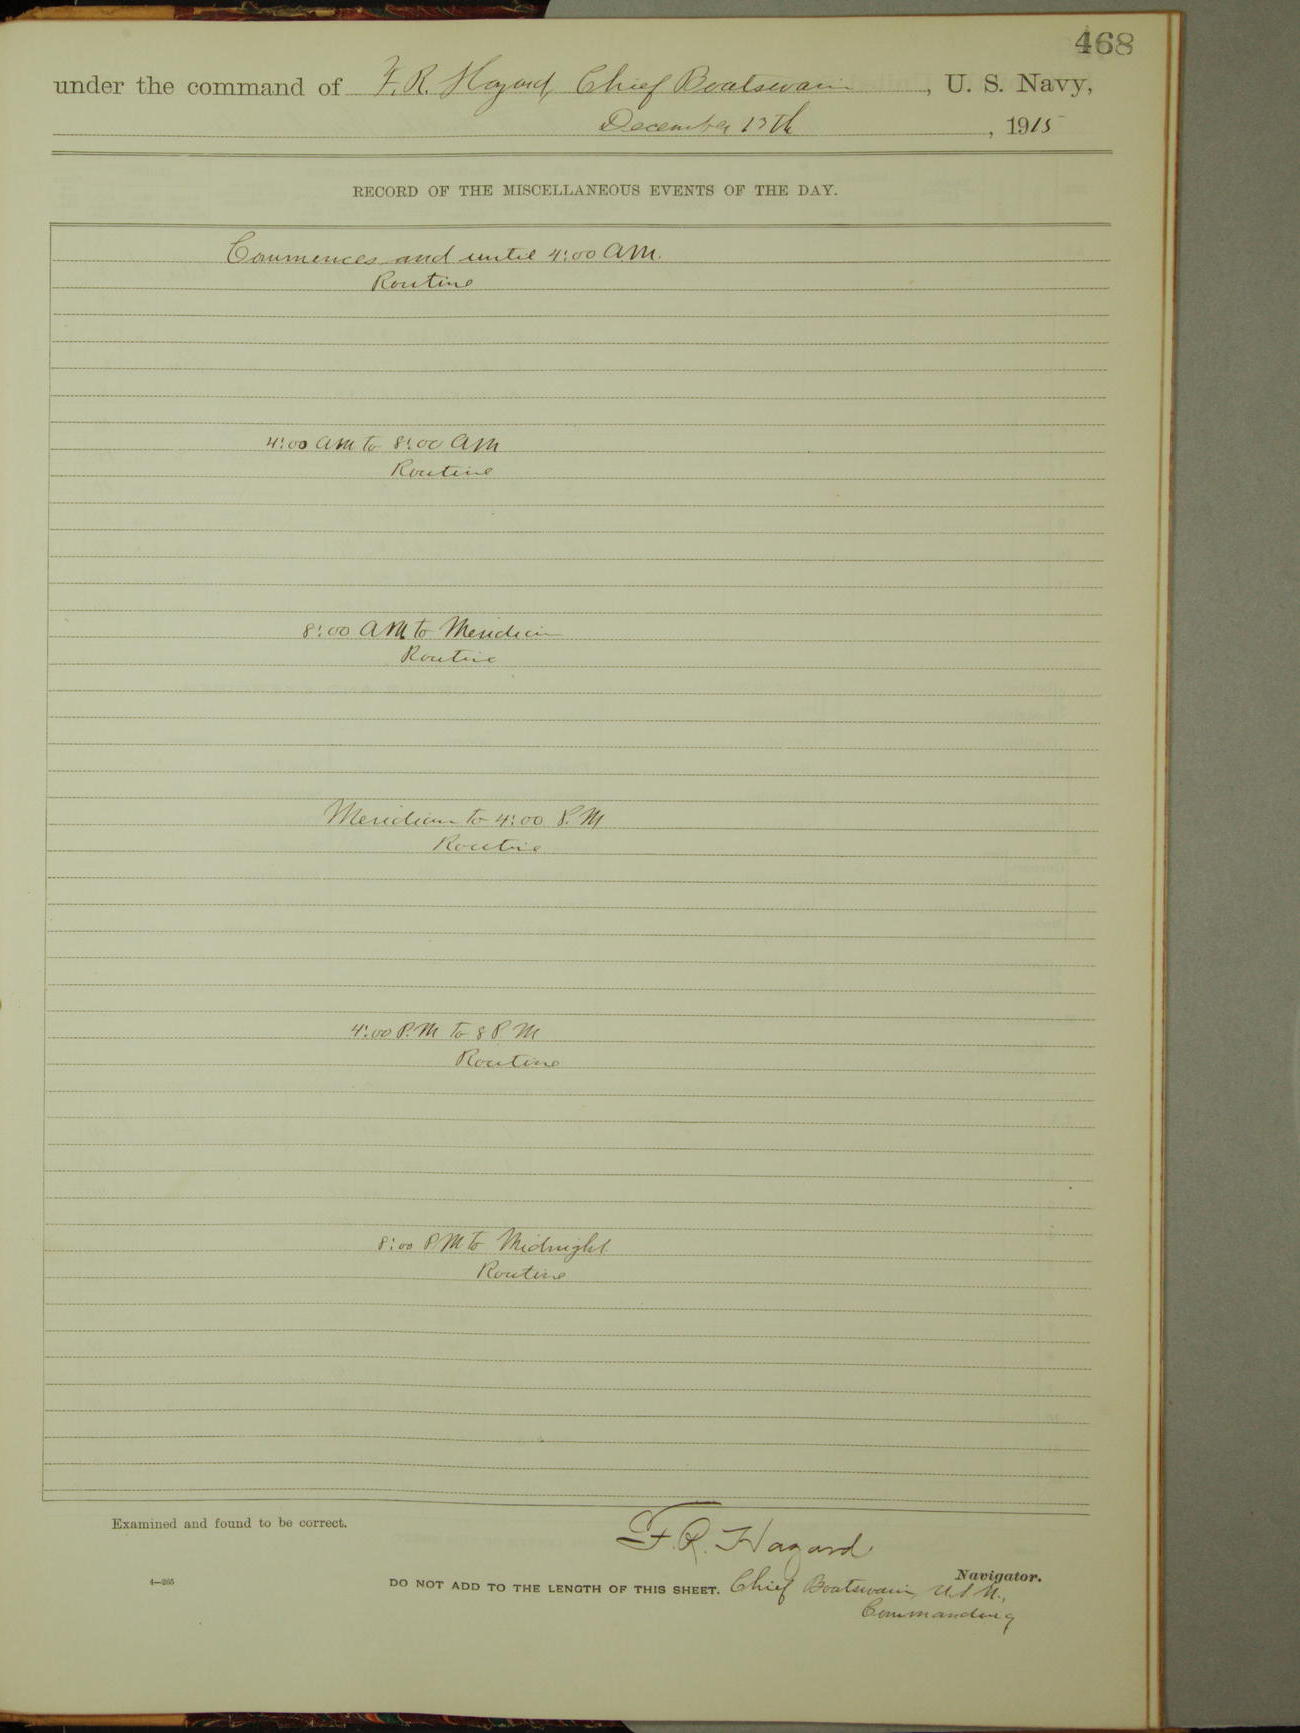 468
under the command of F. R. Hazard, Chief Boatswain, U. S. Navy,
December 13th, 1915
RECORD OF THE MISCELLANEOUS EVENTS OF THE DAY.
Commences and until 4:00 AM.
Routine
4:00 AM to 8:00 AM
Routine
8:00 AM to Meridian
Routine
Meridian to 4:00 P.M
Routine
4:00 P.M to 8 P.M
Routine
8:00 PM to Midnight
Routine
Examined and found to be correct.
F. R. Hazard
Navigator.
4—265
DO NOT ADD TO THE LENGTH OF THIS SHEET. Chief Boatswain, U.S.N.,
Commanding